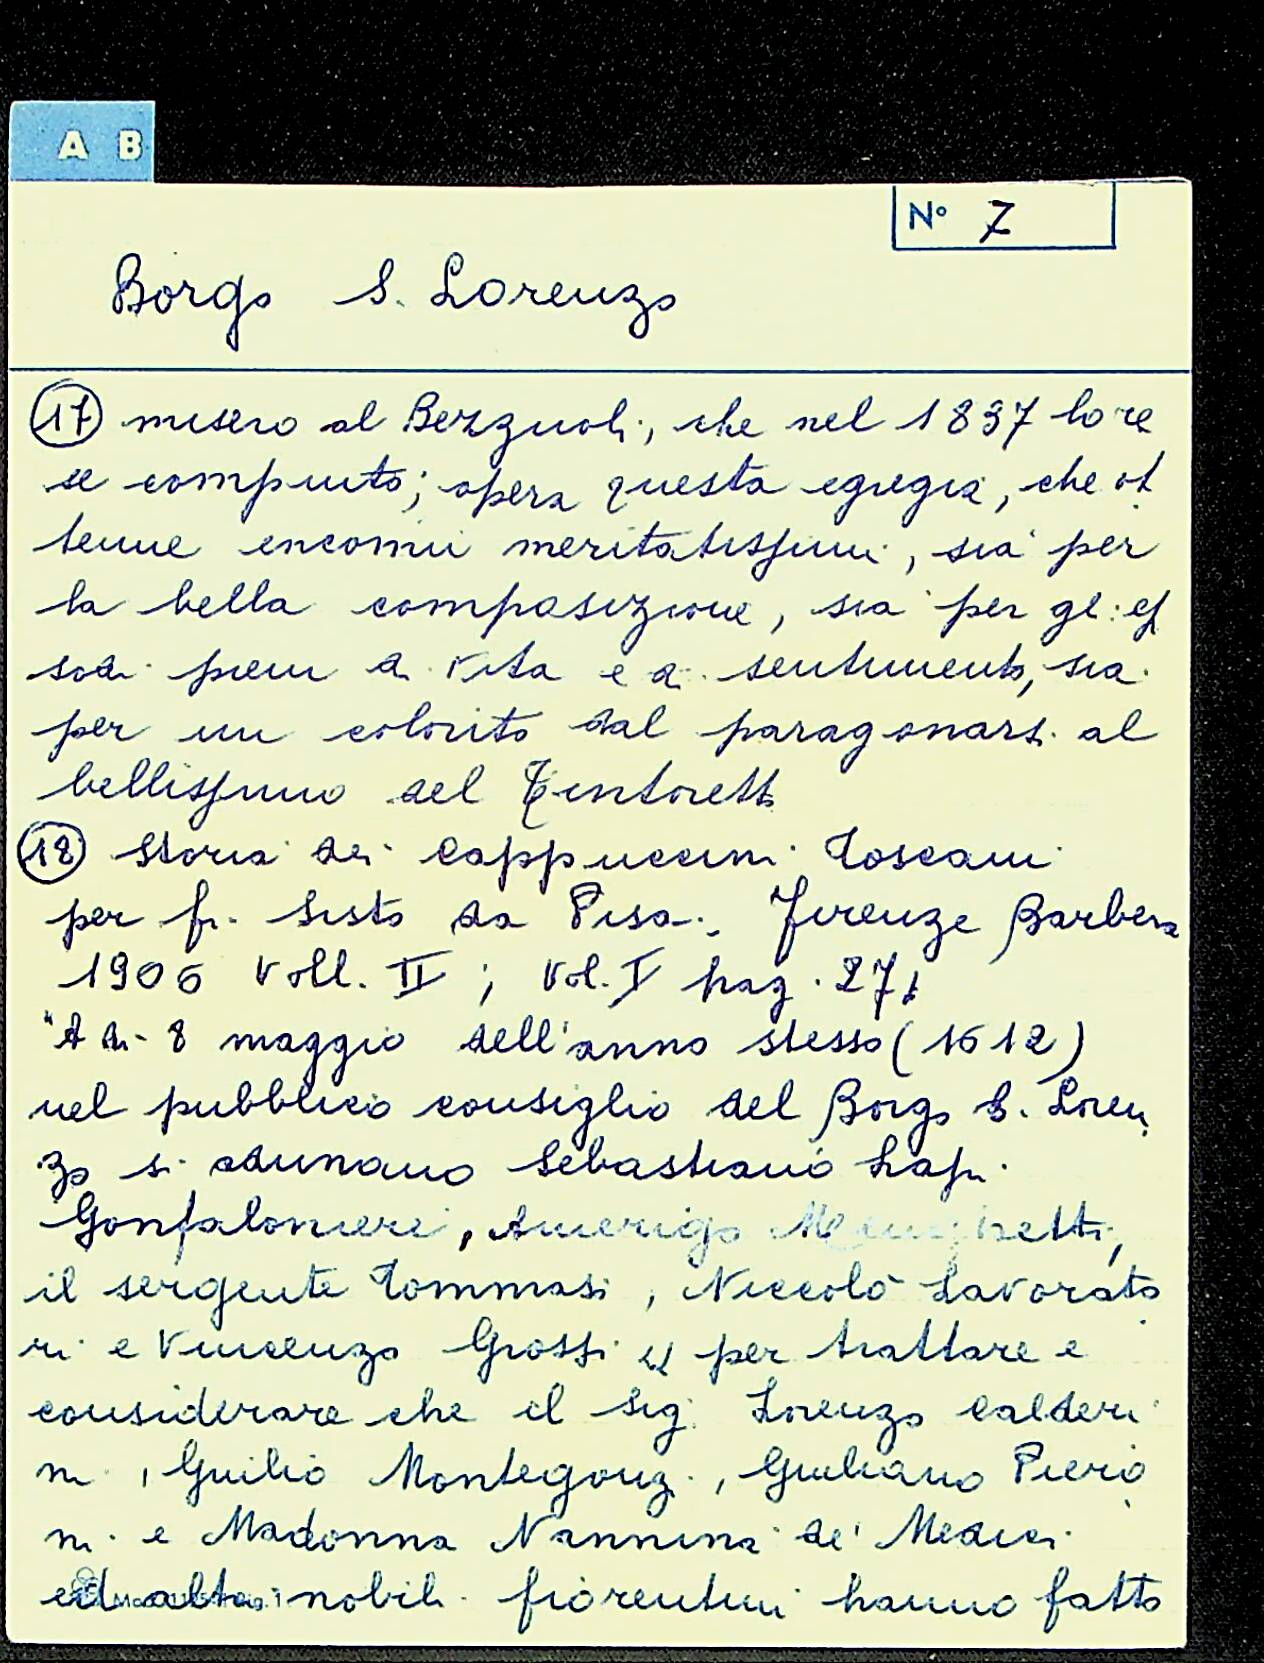 A B
N° 7
Borgo S. Lorenzo
17 misero al Bezzuoli, che nel 1837 lo re
se compiuto; opera questa egregia, che ot
tenne encomii meritatissimi, sia per
la bella composizione, sia per gli epi
sodi pieni di vita e di sentimento, sia
per un colorito dal paragonarsi al
bellissimo del Tintoretto
18 Storia dei Cappuccini Toscani
per fr. Sisto da Pisa. Firenze Barbera
1906 Voll. II; Vol. I pag. 271
"A di 8 maggio dell'anno stesso (1612)
nel pubblico consiglio del Borgo S. Loren
zo si adunano Sebastiano Lapi
Gonfaloniere, Amerigo Menghetti,
il sergente Tommasi, Niccolò Lavorato
ri e Vincenzo Grossi per trattare e
considerare che il sig. Lorenzo Calderi
ni, Guilio Montegonzi, Giuliano Pierio
ni e Madonna Nannina de' Medici
ed altri nobili fiorentini hanno fatto